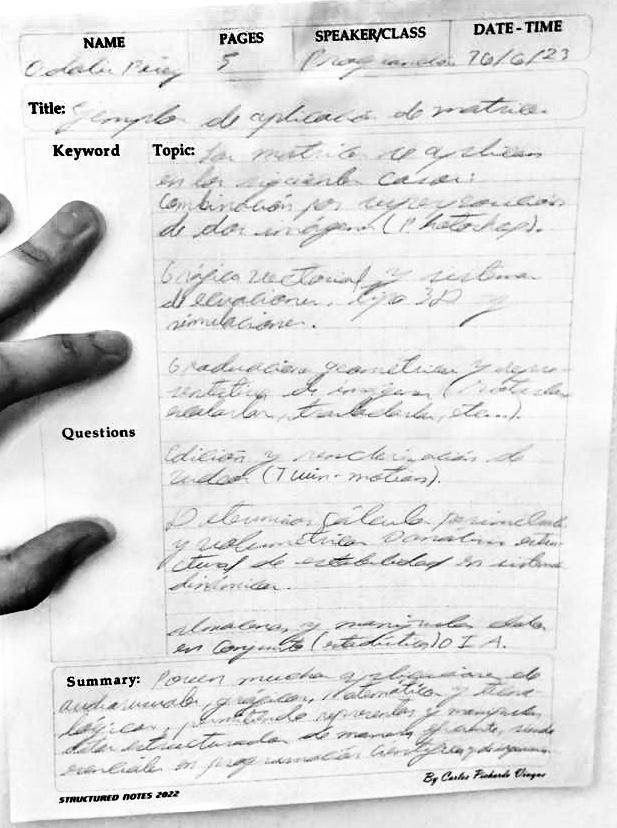 NAME PAGES SPEAKER/CLASS DATE - TIME
5 16/6/23
Title: de aplicación de matrices
Keyword Topic: Las matrices se aplican
en los siguientes casos:
Combinación por superposición
de dos imágenes (Photoshop).
Gráfica vectorial y sistema
de ecuaciones, tipo 3D y
simulaciones.
geométrica y repre-
sentativa de imágenes (rotarlas
trasladarlas, etc...).
Questions
Edición y renderización de
video (Twin-motion).
cálculo
y volumétrico o análisis estru-
ctural de estabilidad en sistema
dinámicos.
Almacenar y manipular datos
en conjunto (estadística) O I.A.
Summary: Poseen mucha aplicaciones de
audiovisuales, gráficas, matemática y tecno-
lógicas, permitiendo representar y manipular
datos estructurados de manera eficiente, siendo
esenciales en programación científica y
By Carlos Pichardo Vinque
STRUCTURED NOTES 2022